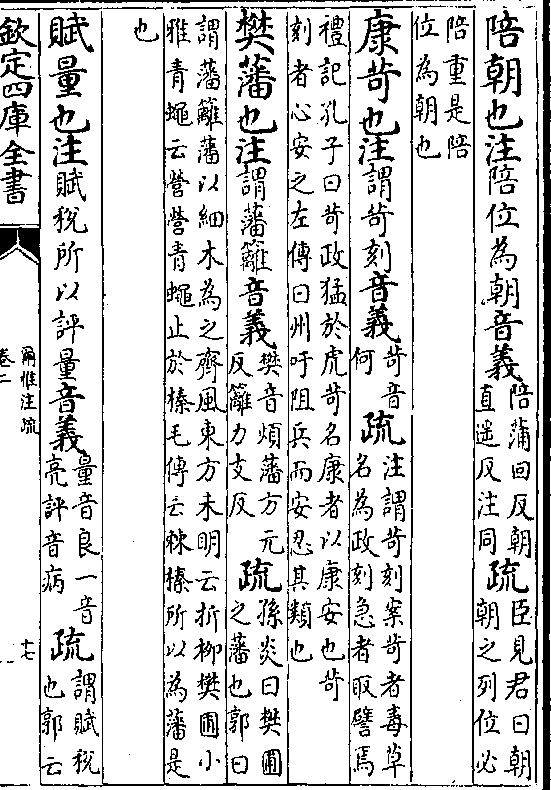 陪朝也注陪位為朝音義陪蒲回反朝直遥反注同疏臣見君曰朝朝之列位必
陪重是陪位為朝也
康苛也注謂苛刻音義苛音何疏注謂苛刻案苛者毒草名為政刻急者取譬焉
禮記孔子曰苛政猛於虎苛名康者以康安也苛刻者心安之左傳曰州吁阻兵而安忍其類也
樊藩也注謂藩籬音義樊音煩藩方元反籬力支反疏孫炎曰樊圃之藩也郭曰
謂藩籬藩以細木為之齊風東方未明云折柳樊圃小雅青蠅云營營青蠅止於榛毛傳云棘榛所以為藩是
也
賦量也注賦稅所以評量音義量音良一音亮評音病疏謂賦稅也郭云
欽定四庫全書
爾雅注疏
卷二
十七